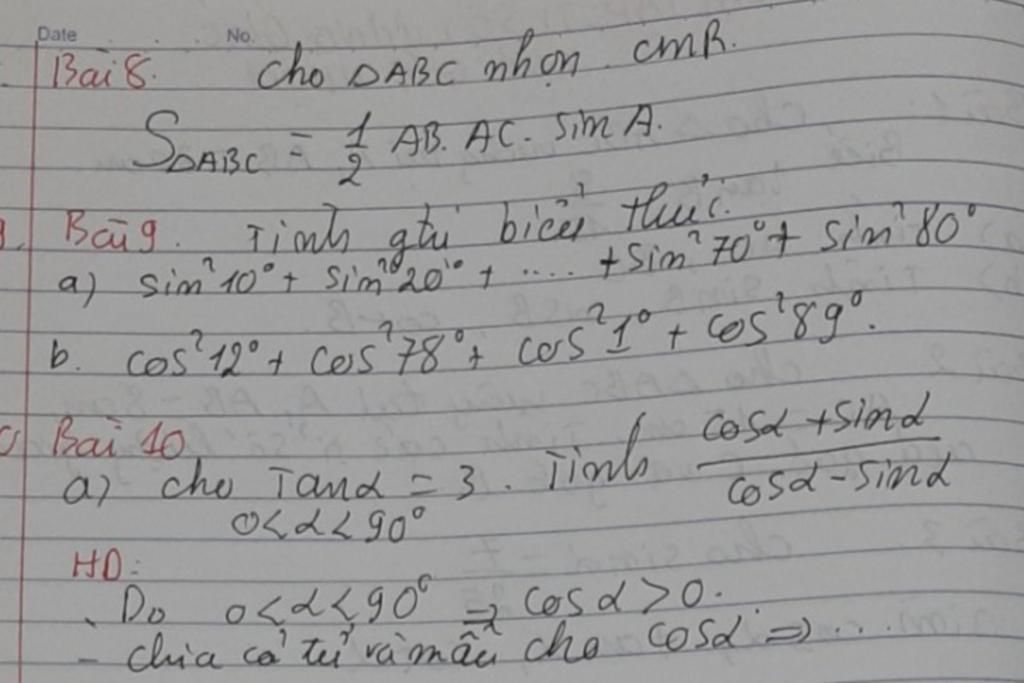 Date No.
Bài 8. Cho ΔABC nhọn. CMR.
SΔABC = 1/2 AB. AC. sin A.
Bài 9. Tính gtrị biểu thức.
a) sin²10° + sin²20° + .... + sin²70° + sin²80°
b. cos²12° + cos²78° + cos²1° + cos²89°.
Bài 10
a) cho Tanα = 3. Tính (cosα + sinα)/(cosα - sinα)
0<α<90°
HD:
. Do 0<α<90° ⇒ cosα>0.
- chia cả tử và mẫu cho cosα ⇒ ...